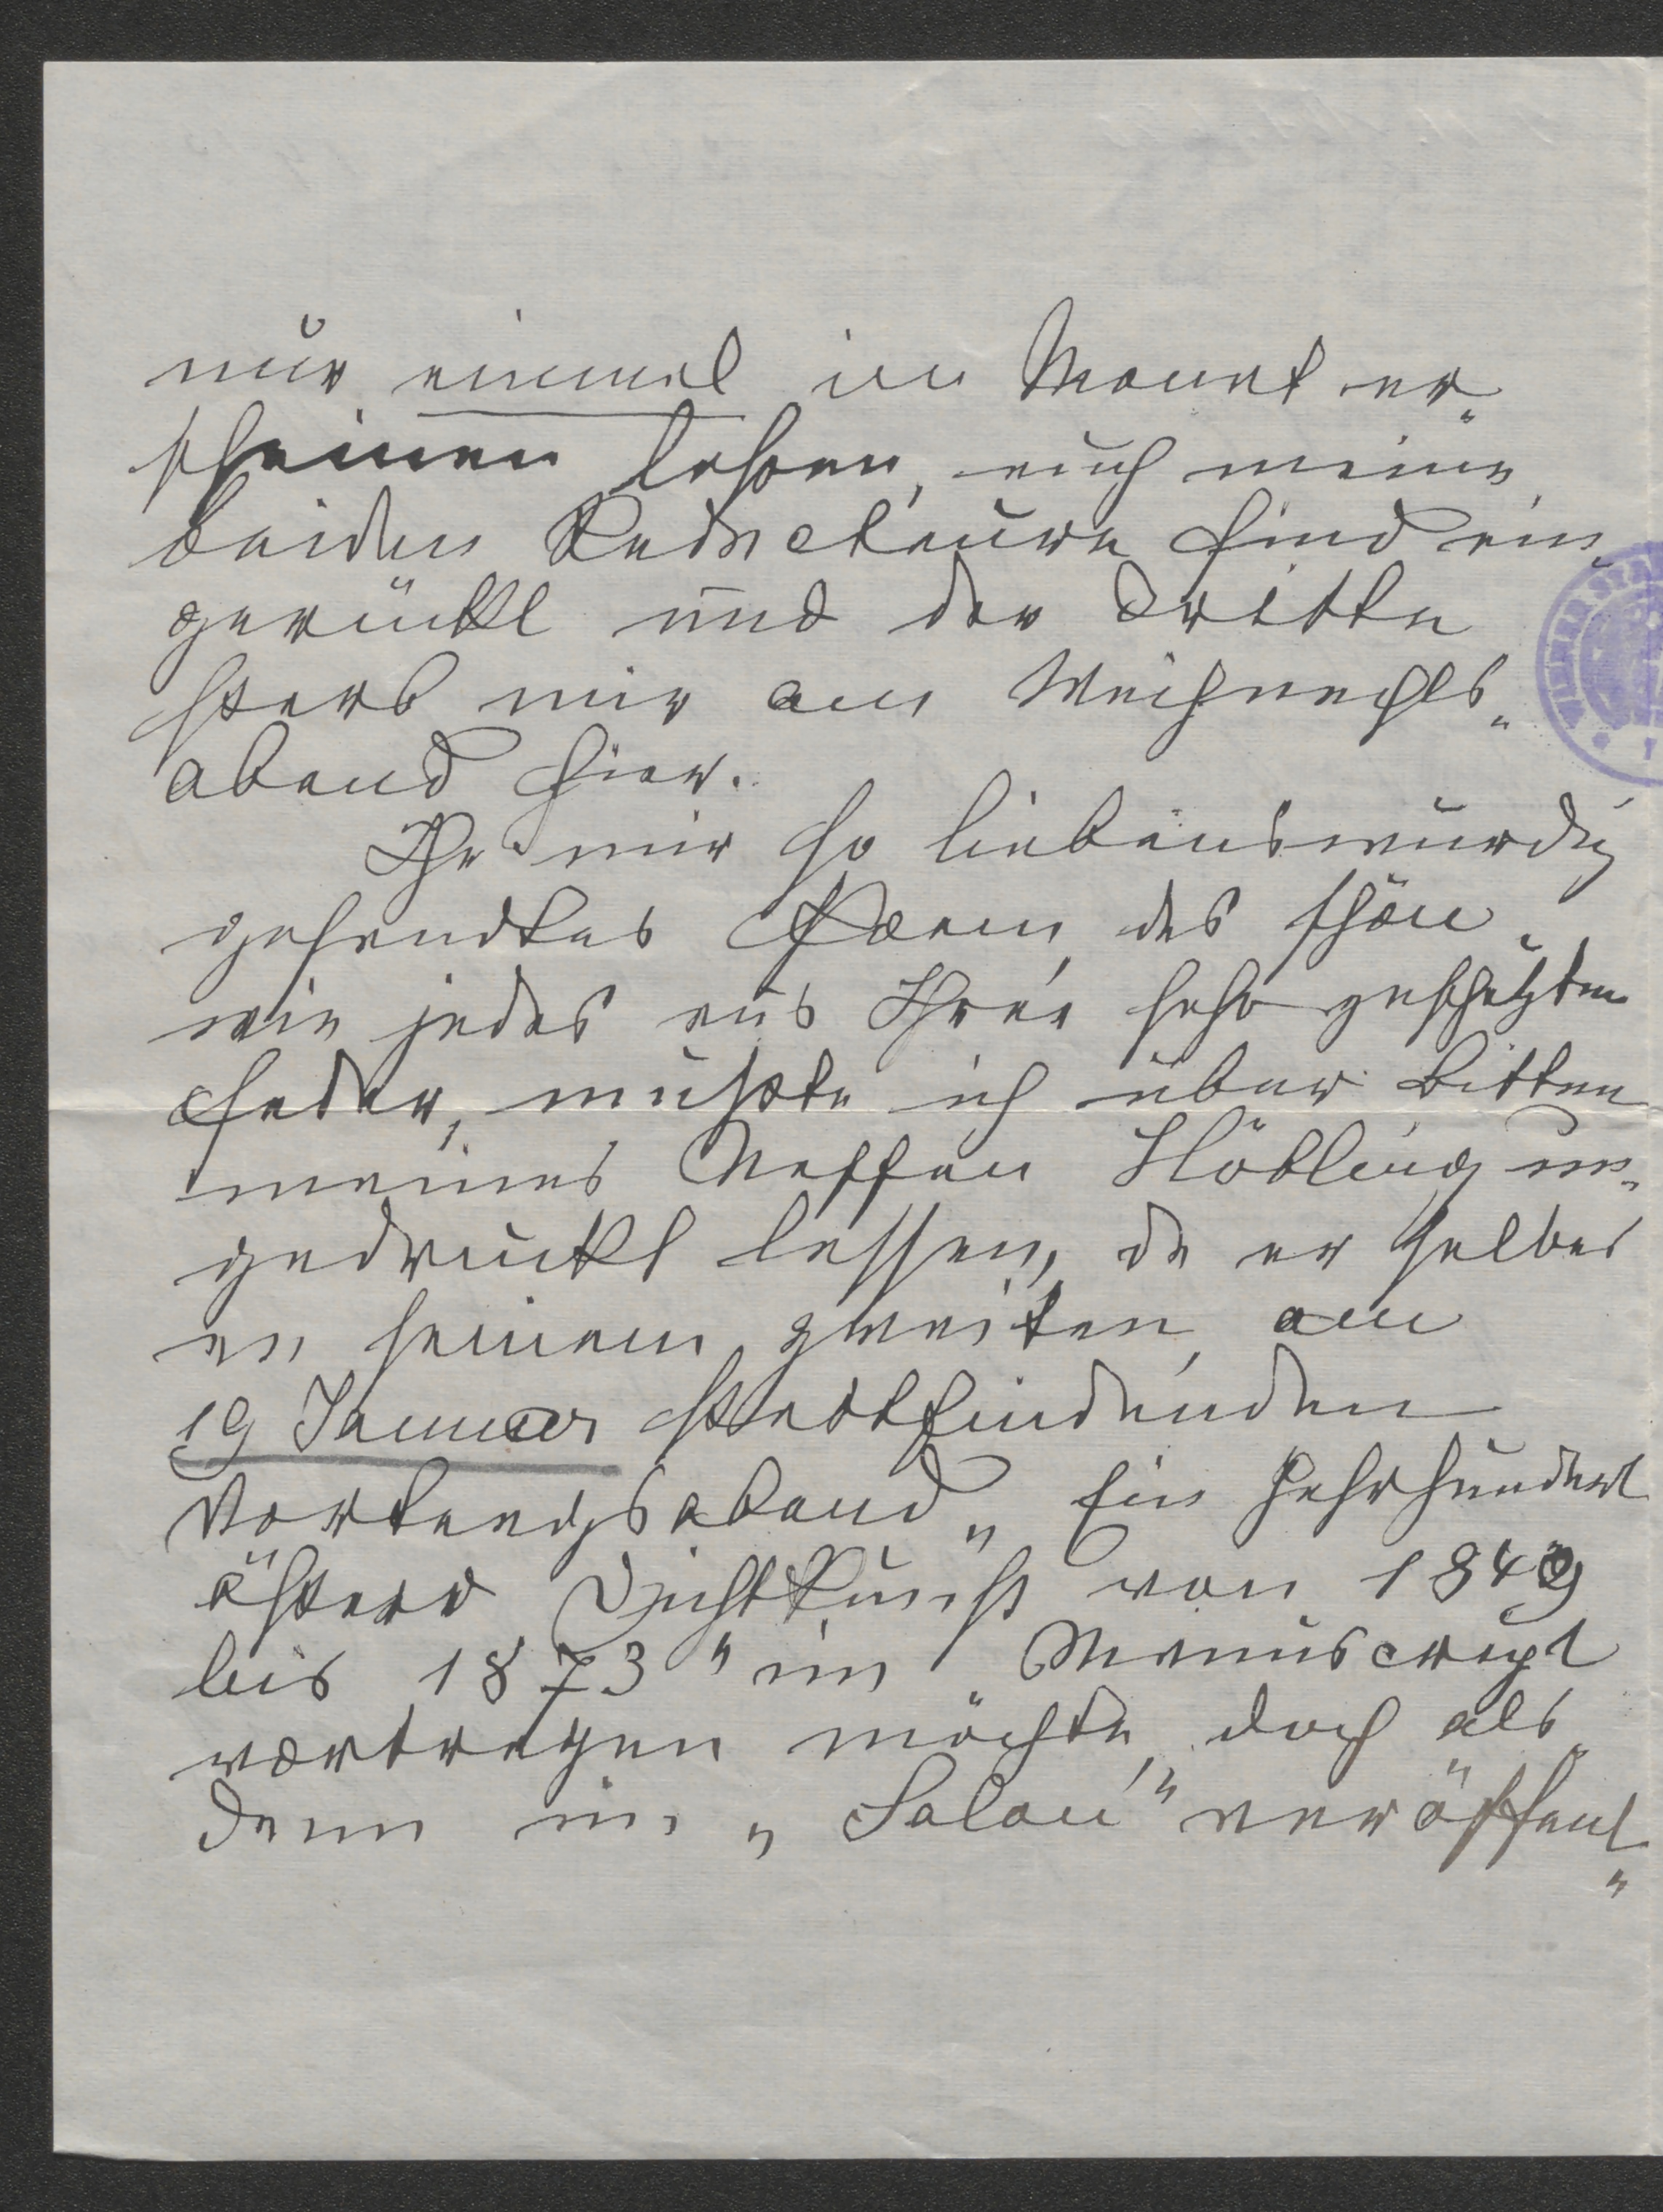 nur einmal im Monat er-
scheinen lassen, auch meine
beiden Redacteure sind ein-
gerückt und der dritte
starb mir am Weihnachts-
abend hier.
Ihr mir so liebenswürdig
gesendtes Poem, das schön,
wie jedes aus Ihrer sehr geschätzten
Feder, mußte ich über Bitten
meines Neffen Höbling un-
gedruckt lassen, da er selbes
an seinem zweiten, am
19 Januar stattfindenden
Vortragsabend „Ein Jahrhundert
österr Dichtkunst von 1849
bis 1873" im Manuscript
vortragen möchte, doch als
dann im „Salon" veröffent-
WIENER STA